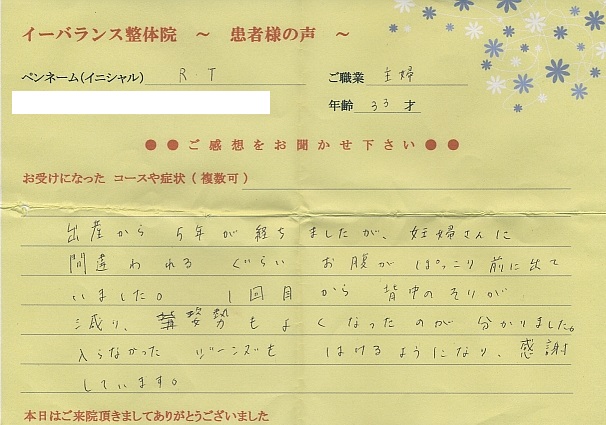 イーバランス整体院 ～ 患者様の声 ～
ペンネーム(イニシャル) R T ご職業 主婦
年齢 33 才
●●ご感想をお聞かせ下さい●●
お受けになった コースや症状(複数可)
出産から 5年が経ちましたが、妊婦さんに
間違われる ぐらい お腹が ぽっこり前に出て
いました。 1回目から 背中のそりが
減り、姿勢もよくなったのが 分かりました。
入らなかった ジーンズも はけるようになり、感謝
しています。
本日はご来院頂きましてありがとうございました